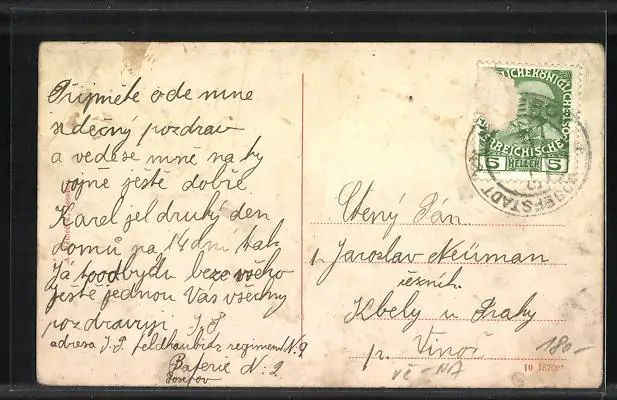 Přijměte ode mne
srdečný pozdrav
a vede se mně na by
vojně ještě dobře.
Karel jel druhý den
domů na 14 dní tak
Ja to odbydu beze všeho
Ještě jednou Vás všechny
pozdravuji J. P.
adresa J. P. feldhaubitz regiment N. 9
Baterie N: 2
Josefov
REICHISCHE POST
5 HELLER 5
JOSEFSTADT
Ctěný Pán
Jaroslav Neüman
řezník
Kbely u Prahy
p. Vinoř
180-
10 18706